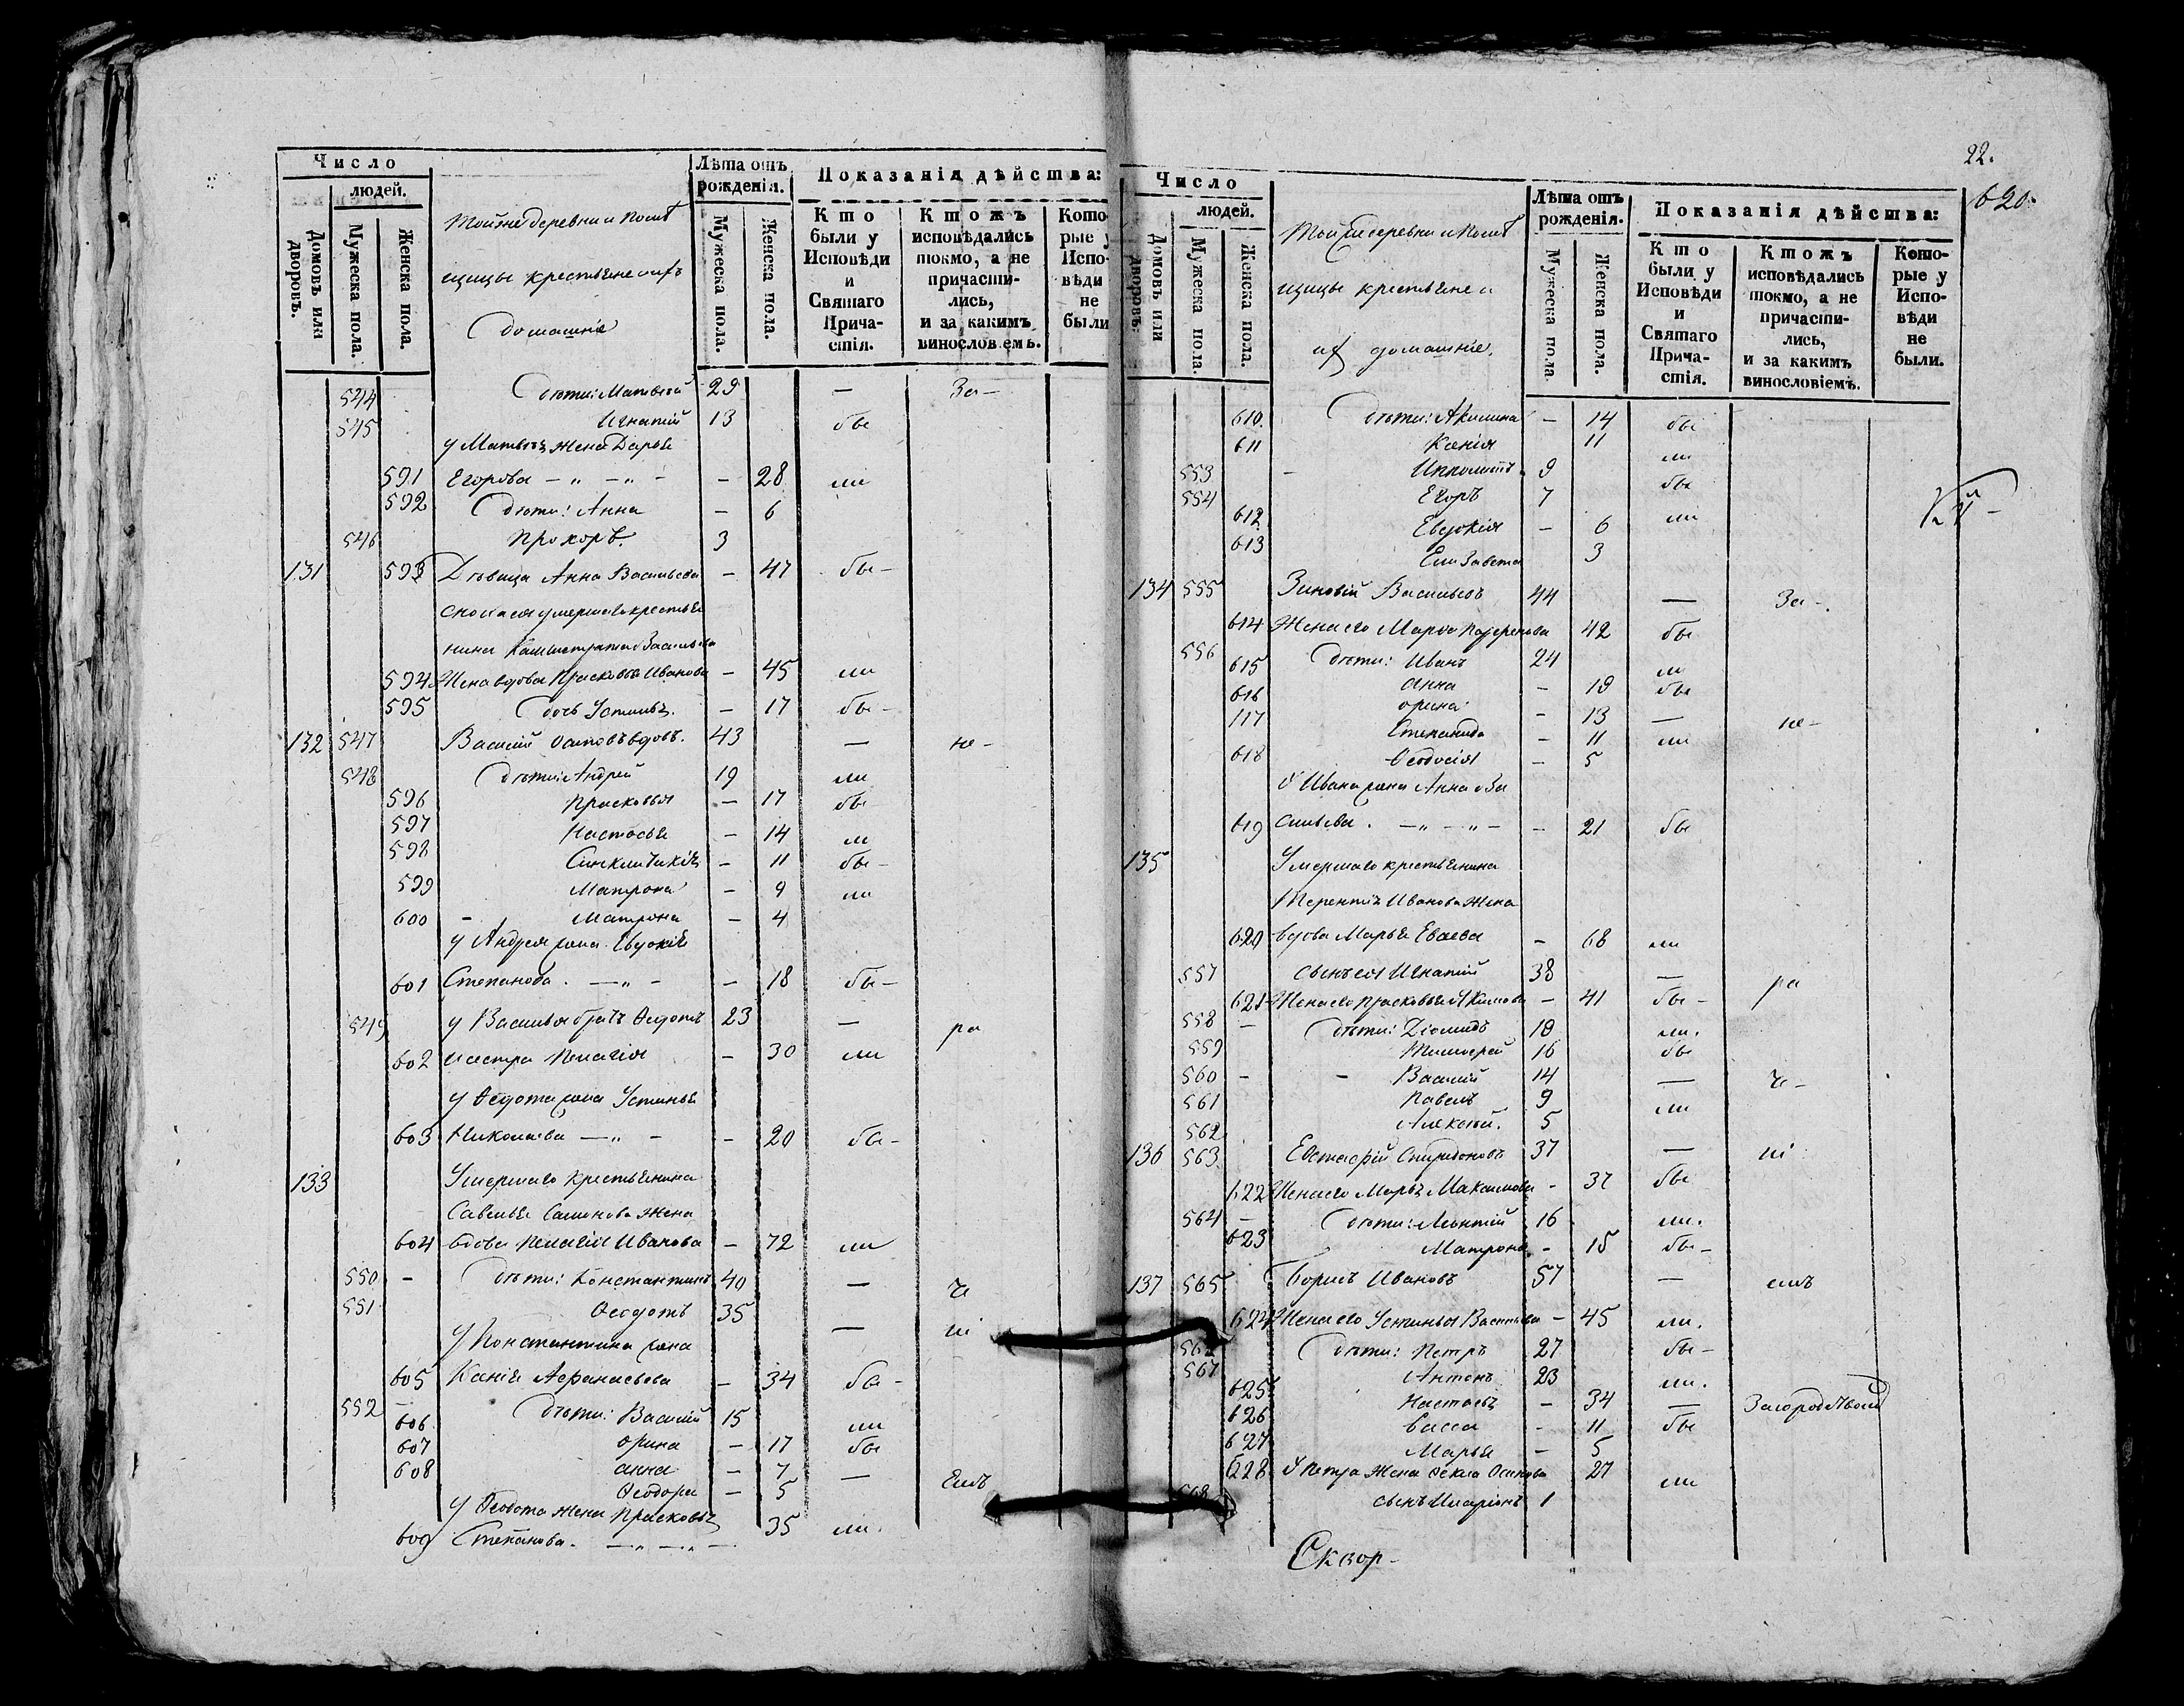 Число
людей.
Домовъ или дворовъ.
Мужеска пола.
Женска пола.
Тойже деревни и помѣ
щицы крестьяне и ихъ
домашніе
Лѣта отъ рожденія.
Мужеска пола.
Женска пола.
Показанія дѣйства:
Кто были у Исповѣди и Святаго Причастія.
Ктожъ исповѣдались токмо, а не причастились, и за какимъ винословіемъ.
Которые у Исповѣди не были
544 дѣти: Матвей 29 — За—
545 Игнатий 13 бы
у Матвея жена Дарья
591 Егорова — „ — „ - - 28 ли
592 дѣти: Анна - 6
546 Прохоръ. 3
131 593 Дѣвица Анна Васильева - 47 бы-
сноха ея умершаго крестья
нина Каллистрата Васильева
594 жена вдова Прасковья Иванова - 45 ли
595 дочь Устинья. - 17 бы-
132 547 Василий Осиповъ вдовъ. 43 — не-
548 дѣти: Андрей 19 ли
596 Прасковья - 17 бы
597 Настасья - 14 ли
598 Синклитикія - 11 бы-
599 Матрона - 9 ли
600 Матрона - 4
у Андрея жена Евдокія
601 Степанова. — „ - - 18 бы-
549 у Василья братъ Федотъ 23 — ра
602 и сестра Пелагія - 30 ли
у Федота жена Устинья
603 Николаева — „ - - 20 бы-
133 Умершаго крестьянина
Савелья Самонова жена
604 вдова Пелагія Иванова - 72 ли
550 - дѣти: Константинъ 40 — че
551 Феодотъ 35 — ні
у Константина жена
605 Ксенія Афанасьева - 34 бы-
552 дѣти: Василий 15 ли
606 Орина - 17 бы
607 Анна - 7 — емъ
608 Феодора - 5
у Феодота жена Прасковья
609 Степанова. — „ — „ — 35 ли.
22.
620.
Число
людей.
Домовъ или дворовъ.
Мужеска пола.
Женска пола.
Той же деревни и помѣ
щицы крестьяне и
ихъ домашніе.
Лѣта отъ рожденія.
Мужеска пола
Женска пола.
Показанія дѣйства:
Кто были у Исповѣди и Святаго Причастія.
Ктожъ исповѣдались токмо, а не причастились, и за какимъ винословіемъ.
Которые у Исповѣди не были.
610. дѣти: Акилина - 14 бы
611 Ксенія 11 ли
553 - Ипполитъ 9 бы
554 Егоръ 7 ли
612 Евдокія - 6
613 Елизавета 3
134 555 Зиновій Васильевъ 44 — За-.
614 Жена его Марфа 42 бы
556 дѣти: Иванъ 24 ли
615 Анна - 19 бы
616 Орина - 13 — не-
117 Степанида - 11 ли
618 Феодосія - 5
У Ивана жена Анна Ва
619 сильева. — „ - „ - - 21 бы
135 Умершаго крестьянина
Терентія Иванова жена
620 вдова Марья Еваева - 68 ли
557 сынъ ея Игнатий 38 — ра
621 Жена его Прасковья Акимова - 41 бы-
558 - дѣти: Діомидъ 18 ли.
559 Тимофей 16 бы
560 - - Василий 14 — че-
561 Павелъ 9 ли
562 Алексѣй. 5
136 563 Евстафій Спиридоновъ 37 — ні
622 Жена его Марья Максимова - 37 бы
564 - дѣти: Леонтий 16 ли.
623 Матрона - 15 бы-
137 565 Борисъ Ивановъ 57 — емъ
624 Жена его Устинья Васильева - 45 ли.
566 дѣти: Петръ 27 бы-
567 Антонъ 23 ли.
625 Настасья - 34 —
626 Васса - 11 бы
627 Марья - 5
628 У Петра жена Фекла Осипова 27 ли
568 сынъ Иларіонъ 1
Сквор-